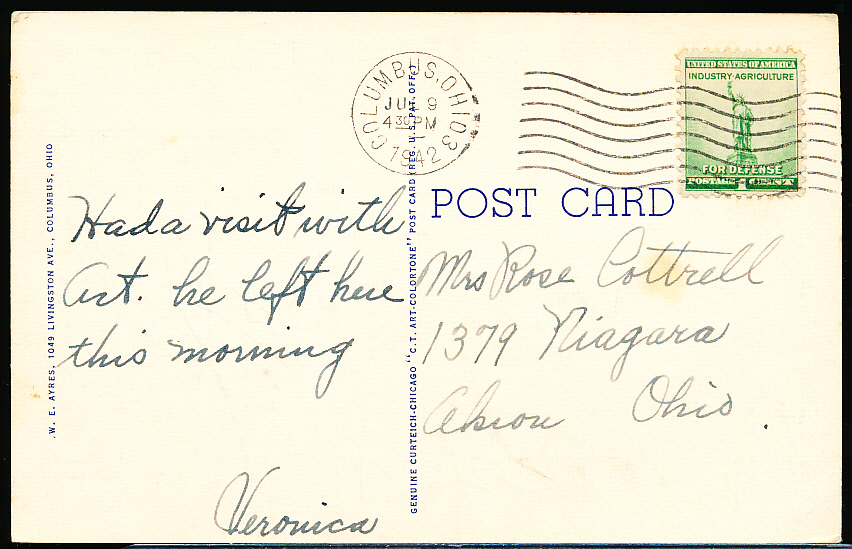 COLUMBUS, OHIO 3
9
4 30 PM
1942
UNITED STATES OF AMERICA
INDUSTRY·AGRICULTURE
FOR DEFENSE
POST CARD
Had a visit with
Art. he left here
this morning
Veronica
Mrs Rose Cottrell
1379 Niagara
Akron Ohio.
W. E. AYRES, 1049 LIVINGSTON AVE., COLUMBUS, OHIO
GENUINE CURTEICH-CHICAGO "C.T. ART-COLORTONE" POST CARD (REG. U.S. PAT. OFF.)